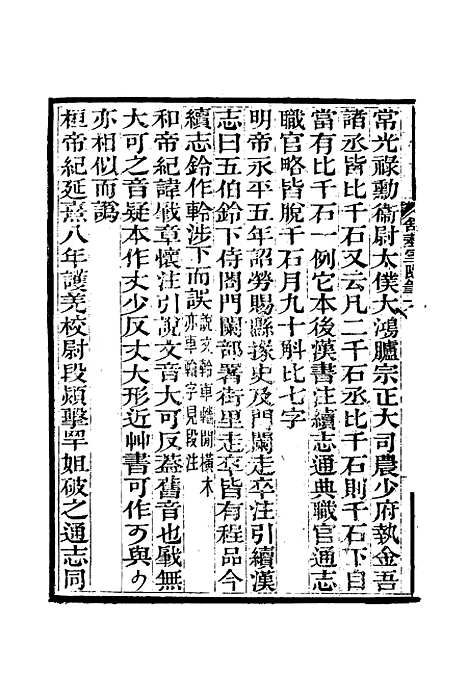 常光祿勳衞尉太僕大鴻臚宗正大司農少府執金吾
諸丞皆比千石又云凡二千石丞比千石則千石下自
當有比千石一例它本後漢書注續志通典職官通志
職官略皆脫千石月九十斛比七字
明帝永平五年詔勞賜縣掾史及門闌走卒注引續漢
志曰五伯鈴下侍閤門闌部署街里走卒皆有程品今
續志鈴作軨涉下而誤說文軨車轖閒橫木
亦車輪字見段注
和帝紀諱肈章懷注引說文音大可反蓋舊音也肈無
大可之音疑本作丈少反丈大形近艸書可作𠃌與少
亦相似而譌
桓帝紀延熹八年護羌校尉段熲擊䍐姐破之通志同